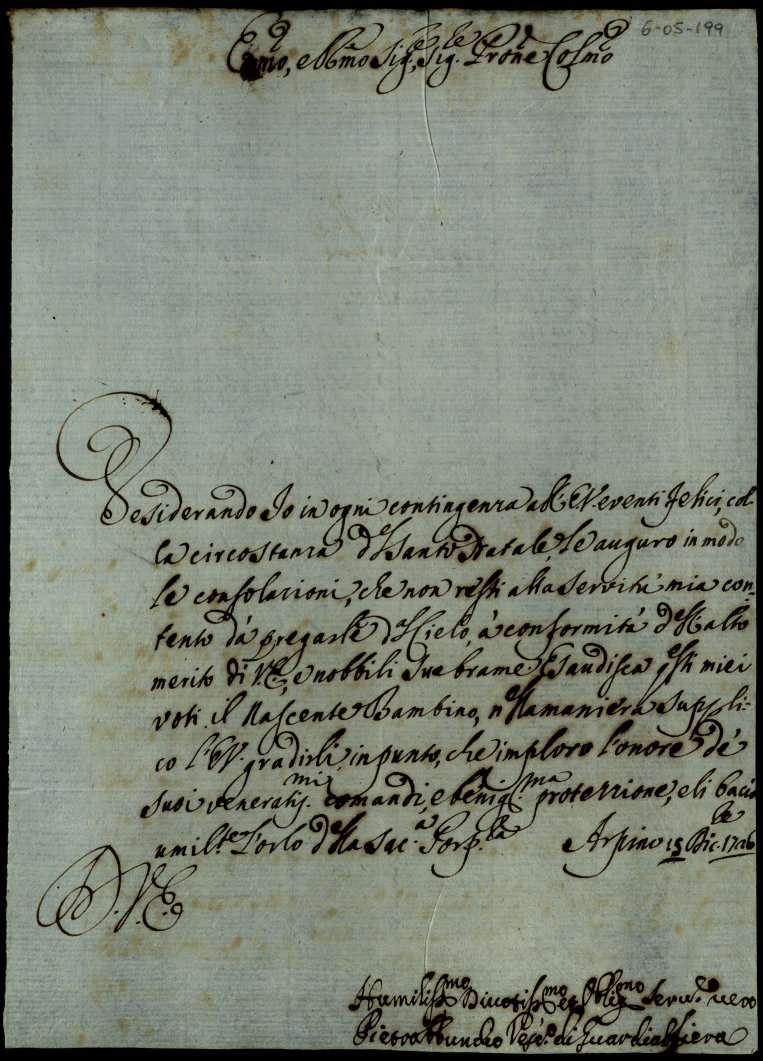 6-05-199
Emo, e Rmo Sig.re, Sig.re Prone Colmo
Desiderando Io in ogni contingenza all'E.V. eventi felici, col-
la circostanza del Santo Natale, Le auguro in modo
le consolazioni, che non resti alla servitù mia con-
tento dà pregarle dal Cielo, à conformità dell'alto
merito di V.E., e nobbili sue brame. Esaudisca questi miei
voti il Nascente Bambino, nella maniera suppli-
co l'E.V. gradirli, in punto, che imploro l'onore dè
suoi veneratis.mi comandi, e benig.ma protezzione, e li bacio
umil.te l'orlo della Sac.a Porp.ra Arpino 15 Dic.bre 1726
D. V. E.
Humiliss.mo Divotiss.mo et Oblig.mo Serv.e vero
Pietro Abbundio Vesc.o di Guardialfiera